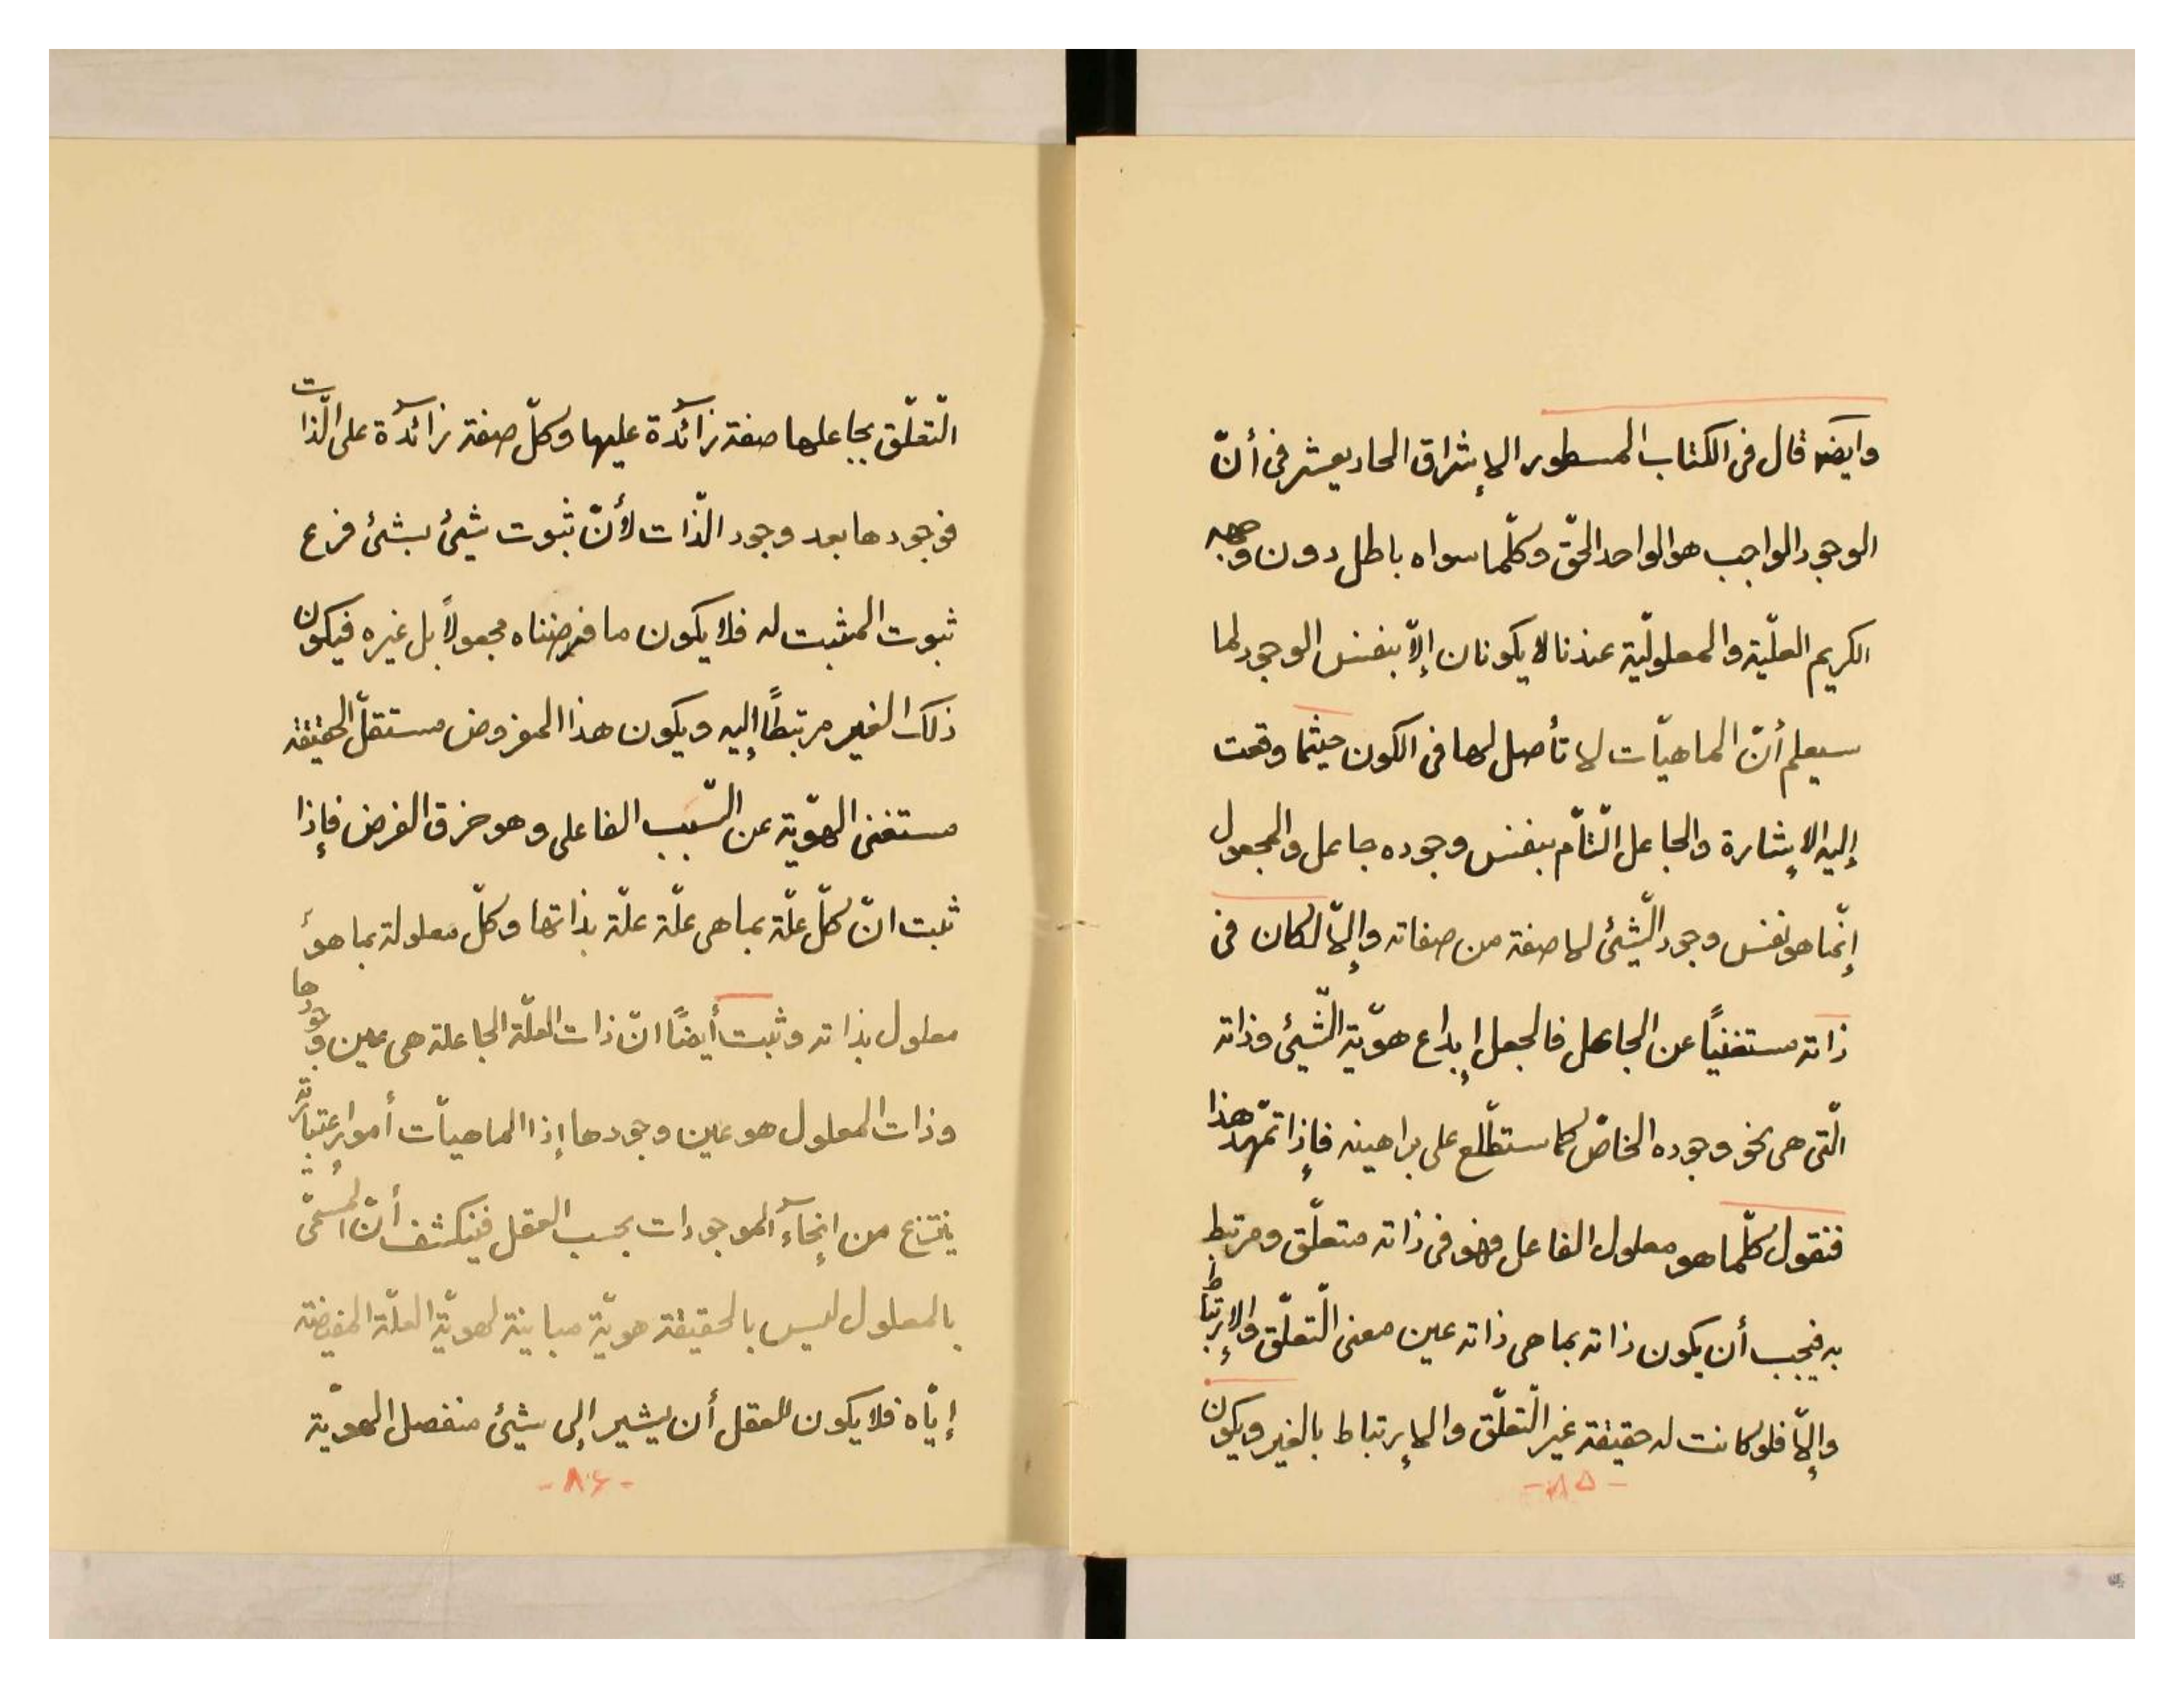 وايضه قال فى الكتاب المسطور الإشراق الحاديعشر فى أنّ
الوجود الواجب هو الواحد الحقّ وكلّما سواه باطل دون وجهه
الكريم العلّيّة والمعلوليّة عندنا لا يكونان إلاّ بنفس الوجود لما
سيعلم أنّ الماهيّات لا تأصل لها فى الكون حيثما وقعت
إليه الإشارة والجاعل التّامّ بنفس وجوده جاعل والمجعول
إنّما هو نفس وجود الشّيئ لا صفة من صفاته وإلاّ لكان فى
ذاته مستغنيًا عن الجاعل فالجعل إبداع هويّة الشّيئ وذاته
الّتى هى نحو وجوده الخاصّ كما ستطّلع على براهينه فإذا تمهّد هذا
فنقول كلّما هو معلول الفاعل فهو فى ذاته متعلّق ومرتبط
به فيجب أن يكون ذاته بما هى ذاته عين معنى التّعلّق والإرتباط
وإلاّ فلو كانت له حقيقة غير التّعلّق والإرتباط بالغير ويكون
- ٨۵ -
التّعلّق بجاعلها صفة زآئدة عليها وكلّ صفة زآئدة على الّذات
فوجودها بعد وجود الّذات لأنّ ثبوت شيئ بشئ فرع
ثبوت المثبت له فلا يكون ما فرضناه مجعولاً بل غيره فيكون
ذلك الغير مرتبطًا إليه ويكون هذا المفروض مستقلّ الحقيقة
مستغنى الهويّة عن السّبب الفاعلى وهو خرق الفرض فإذا
ثبت انّ كلّ علّة بما هى علّة علّة بذاتها وكلّ معلولة بما هو
معلول بذاته وثبت أيضًا انّ ذات العلّة الجاعلة هى عين وجودها
وذات المعلول هو عين وجودها إذا الماهيّات أمور إعتباريّة
ينتزع من إنحآء الموجودات بحسب العقل فينكشف أنّ المُسمّى
بالمعلول ليس بالحقيقة هويّة مباينة لهويّة العلّة المفيضة
إيّاه فلا يكون للعقل أن يشير إلى شيئ منفصل الهويّة
- ٨۶ -